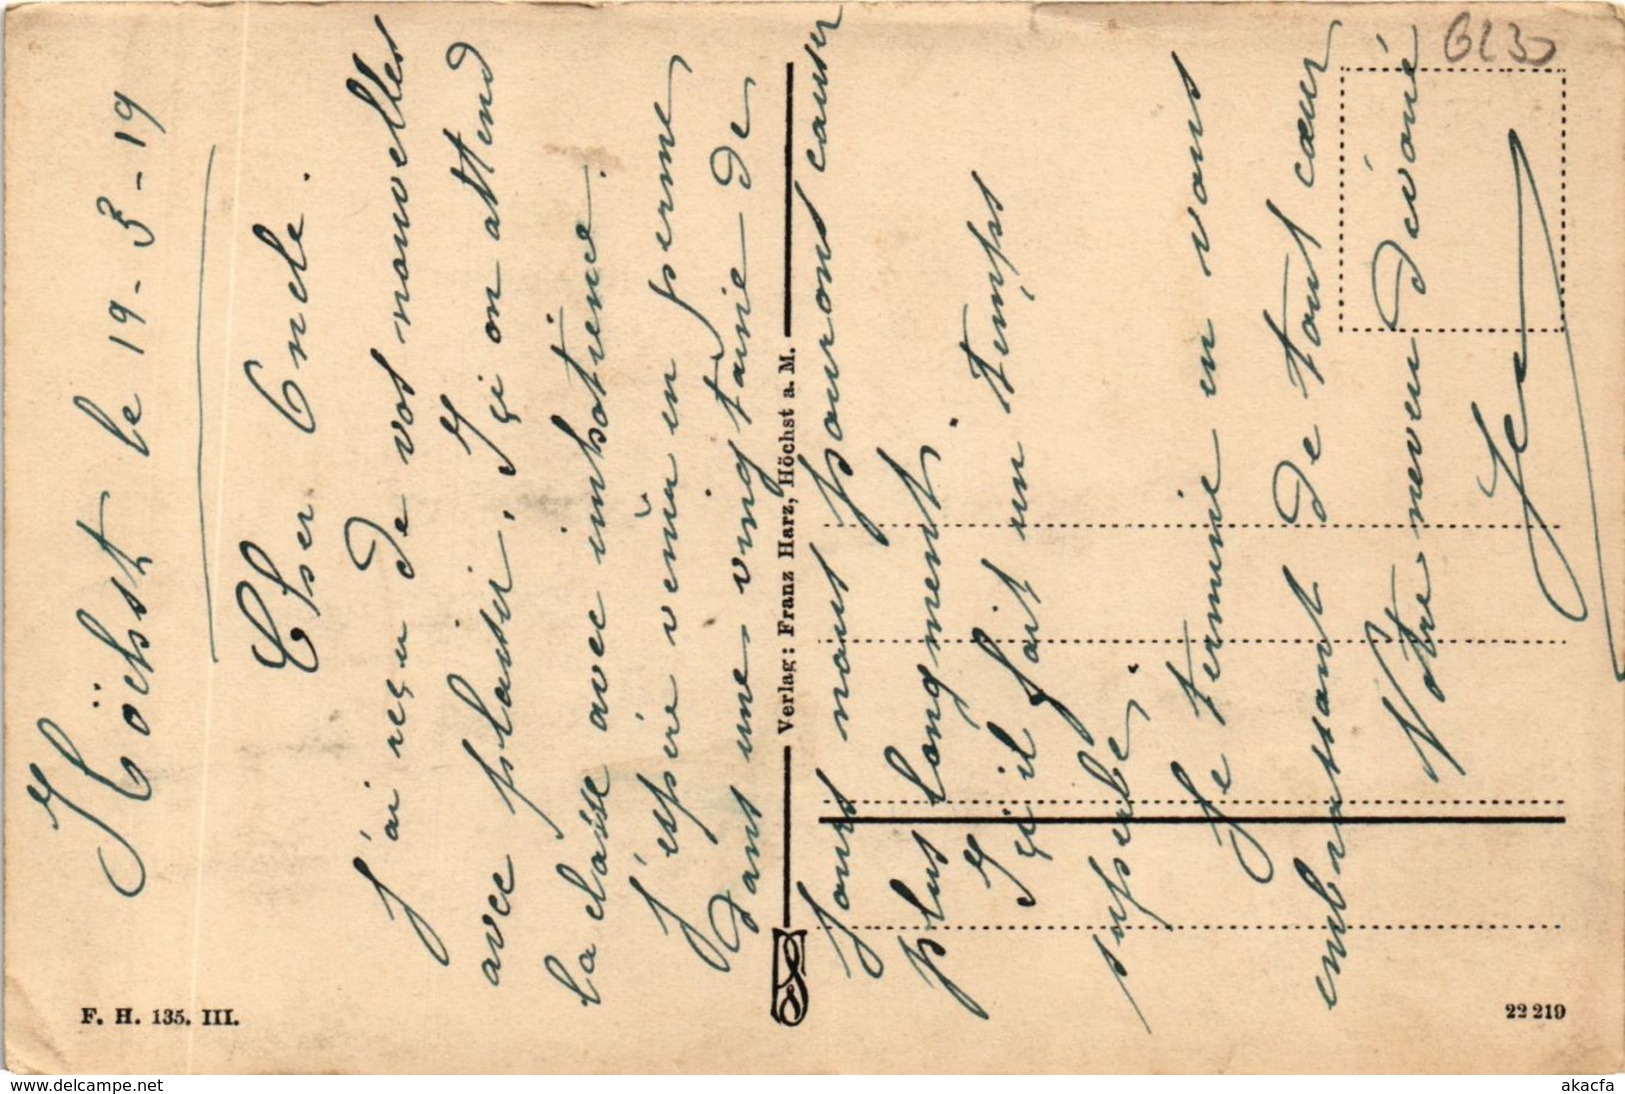 Höchst le 19-3-19
Cher Oncle.
J'ai reçu de vos nouvelles
avec plaisir. Içi on attend
la classe avec impatience.
J'espère venir en perme
dans une vingtaine de
jours nous pourrons causer
plus longment.
Içi il fait un temps
superbe.
Je termine en vous
embrassant de tout cœur
Votre neveu dévoué
6L35
Verlag: Franz Harz, Höchst a. M.
F. H. 135. III.
22 219
www.delcampe.net
akacfa